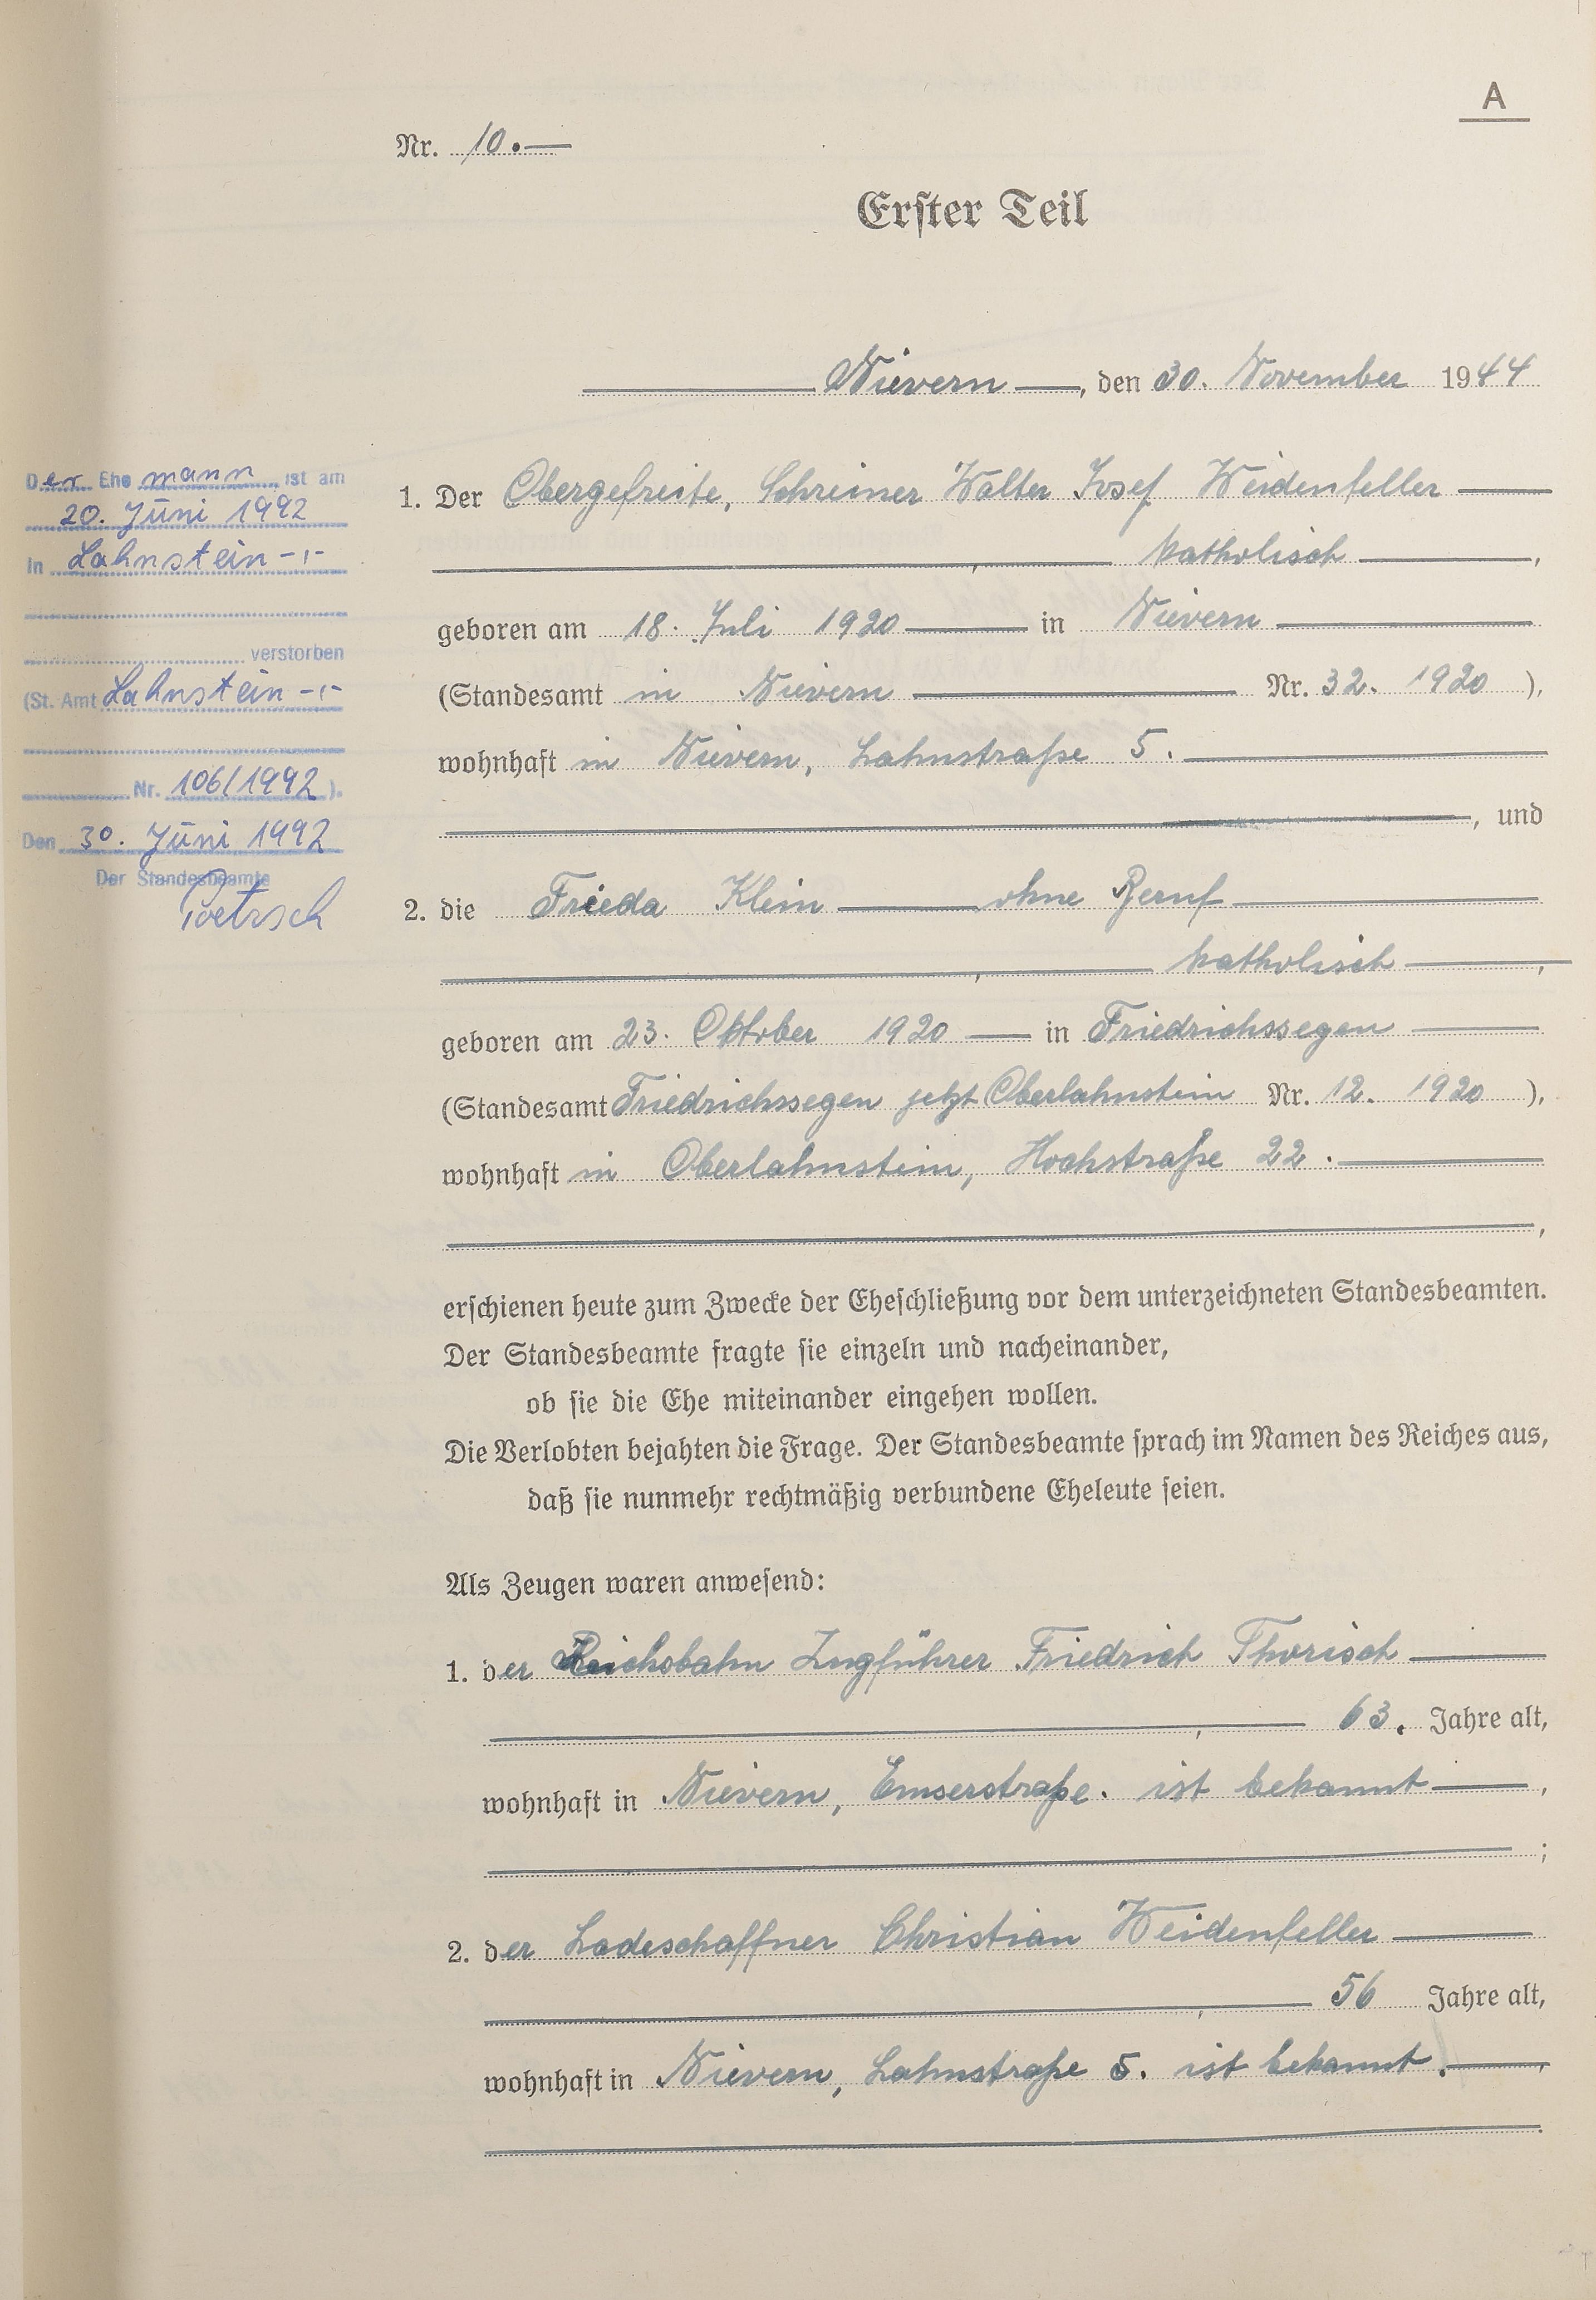 A
Nr. 10.—
Erster Teil
Nievern, den 30. November 1944
Der Ehemann ist am
20. Juni 1992
in Lahnstein -,-
verstorben
(St. Amt Lahnstein -,-
Nr. 106/1992 ).
Den 30. Juni 1992
Der Standesbeamte
Poetzsch
1. Der Obergefreite, Schreiner Walter Josef Weidenfeller
, katholisch ,
geboren am 18. Juli 1920 in Nievern
(Standesamt in Nievern Nr. 32. 1920 ),
wohnhaft in Nievern, Lahnstraße 5.
, und
2. die Frieda Klein ohne Beruf
, katholisch ,
geboren am 23. Oktober 1920 in Friedrichssegen
(Standesamt Friedrichssegen jetzt Oberlahnstein Nr. 12. 1920 ),
wohnhaft in Oberlahnstein, Hochstraße 22.
,
erschienen heute zum Zwecke der Eheschließung vor dem unterzeichneten Standesbeamten.
Der Standesbeamte fragte sie einzeln und nacheinander,
ob sie die Ehe miteinander eingehen wollen.
Die Verlobten bejahten die Frage. Der Standesbeamte sprach im Namen des Reiches aus,
daß sie nunmehr rechtmäßig verbundene Eheleute seien.
Als Zeugen waren anwesend:
1. der Reichsbahn Zugführer Friedrich Thorisch
, 63. Jahre alt,
wohnhaft in Nievern, Emserstraße. ist bekannt ,
;
2. der Ladeschaffner Christian Weidenfeller
, 56 Jahre alt,
wohnhaft in Nievern, Lahnstraße 5. ist bekannt. ,
.